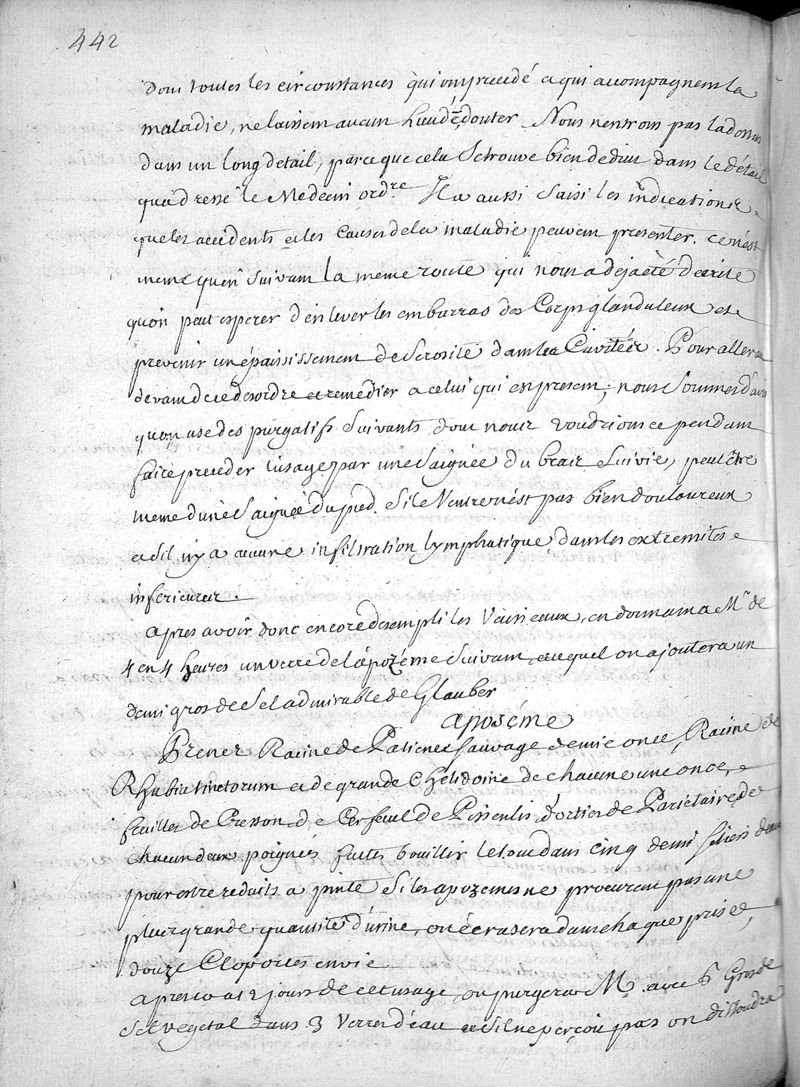 442
dont toutes les circonstances qui ont precedé et qui accompagnent la
maladie, ne laissent aucun lieu de douter. Nous nentrons pas la dessus
dans un long detail, parce que cela se trouve bien deduit dans le détail
qu'a dressé le Medecin ord.re Il a aussi saisi les indications
que les accidents et les causes de la maladie peuvent presenter. ce n'est
meme qu'en suivant la meme route qui nous a deja eté décrite
qu'on peut esperer d'enlever les embarras des Corps glanduleux et
prevenir un épaississement de serosité dans les Cavitéés. Pour aller au
devant de ce desordre et remedier a celui qui est present, nous sommes d'avis
qu'on use des purgatifs suivants dont nous voudrions cependant
faire preceder l'usage par une saignée du bras suivie, peut être
meme d'une saignée du pied, si le Ventre n'est pas bien douloureux
et s'il n'y a aucune infiltration lymphatique dans les extremites
inferieures.
apres avoir donc encore desempli les Vaisseaux, en donnant a Mr de
4 en 4 heures un verre de l'apozeme suivant auquel on ajoutera un
demi gros de sel admirable de Glauber
apozéme
Prenez Racine de Patience sauvage demie once, Racine de
Rhubia tinctorum et de grande Chelidoine de chacune une once,
feuilles de Cresson de Cerfeuil de Pissenlis d'orties de Parietaire de
chacun deux poignés faites bouillir le tout dans cinq demi setiers d'eau
pour estre reduits a pinte si les apozemes ne procurent pas une
plus grande quantité d'urine, on écrasera dans chaque prise
douze Cloportes en vie
apres 10 a 12 jours de cet usage, on purgera M. avec 6 Gros de
sel vegetal dans 3 Verres d'eau et s'il ne perçoit pas on dissoudra